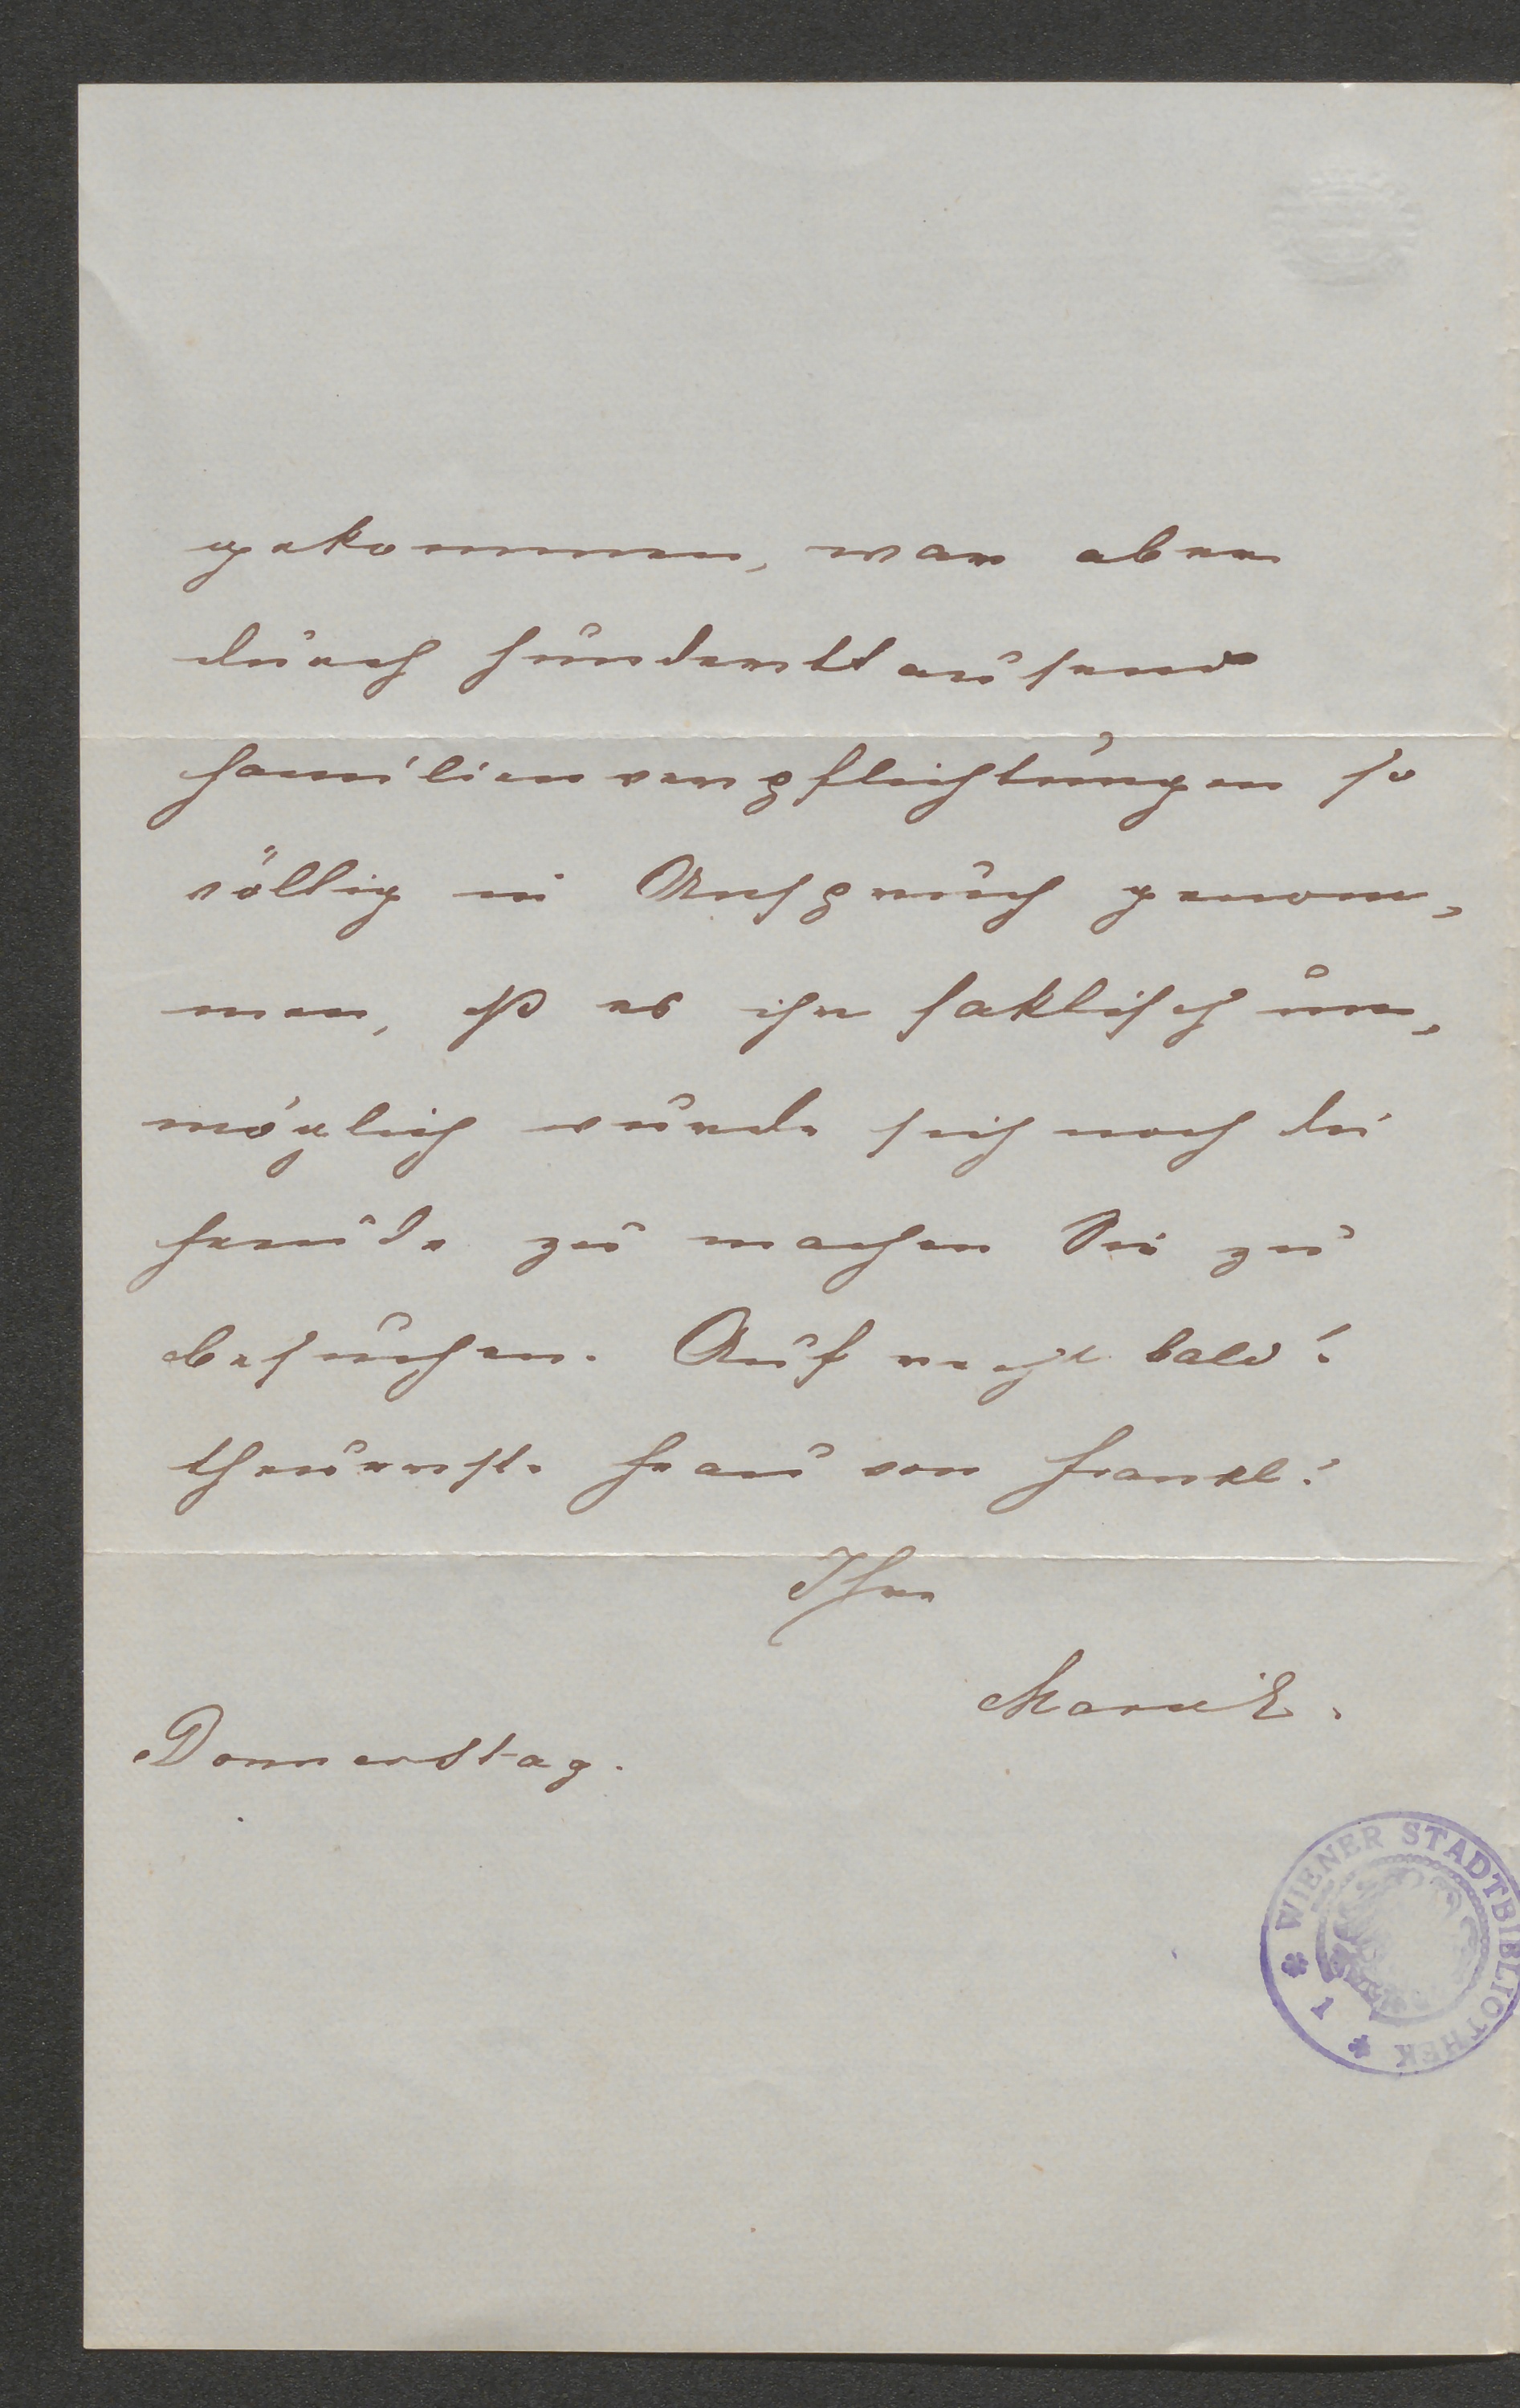 gekommen, war aber
durch hunderttausend
Familienverpflichtungen so
völlig in Anspruch genom„
men, dß es ihr faktisch un„
möglich wurde sich noch die
Freude zu machen Sie zu
besuchen. Auf recht bald!
theuerste Frau von Frankl!
Ihre
MarieE.
Donnerstag.
WIENER STADTBIBLIOTHEK
1